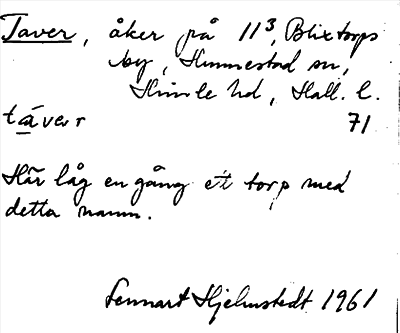 Taver, åker på 11³, Blixtorps
by, Hunnestad sn,
Himle hd, Hall. l.
tá̱ver 71
Här låg en gång ett torp med
detta namn.
Lennart Hjelmstedt 1961